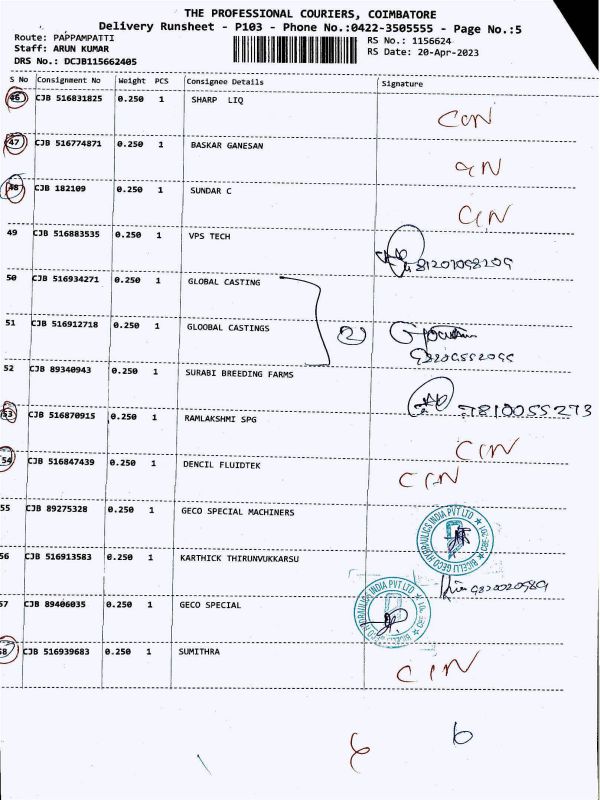 THE PROFESSIONAL COURIERS, COIMBATORE
Delivery Runsheet - P103 - Phone No.:0422-3505555 - Page No.:5
Route: PAPPAMPATTI
Staff: ARUN KUMAR
DRS No.: DCJB115662405
RS No.: 1156624
RS Date: 20-Apr-2023
S No Consignment No Weight PCS Consignee Details Signature
46 CJB 516831825 0.250 1 SHARP LIQ
47 CJB 516774871 0.250 1 BASKAR GANESAN
48 CJB 182109 0.250 1 SUNDAR C
49 CJB 516883535 0.250 1 VPS TECH
50 CJB 516934271 0.250 1 GLOBAL CASTING
51 CJB 516912718 0.250 1 GLOOBAL CASTINGS 2
52 CJB 89340943 0.250 1 SURABI BREEDING FARMS
53 CJB 516870915 0.250 1 RAMLAKSHMI SPG CIN
54 CJB 516847439 0.250 1 DENCIL FLUIDTEK CIN
55 CJB 89275328 0.250 1 GECO SPECIAL MACHINERS
56 CJB 516913583 0.250 1 KARTHICK THIRUNVUKKARSU
57 CJB 89406035 0.250 1 GECO SPECIAL
58 CJB 516939683 0.250 1 SUMITHRA CIN
6